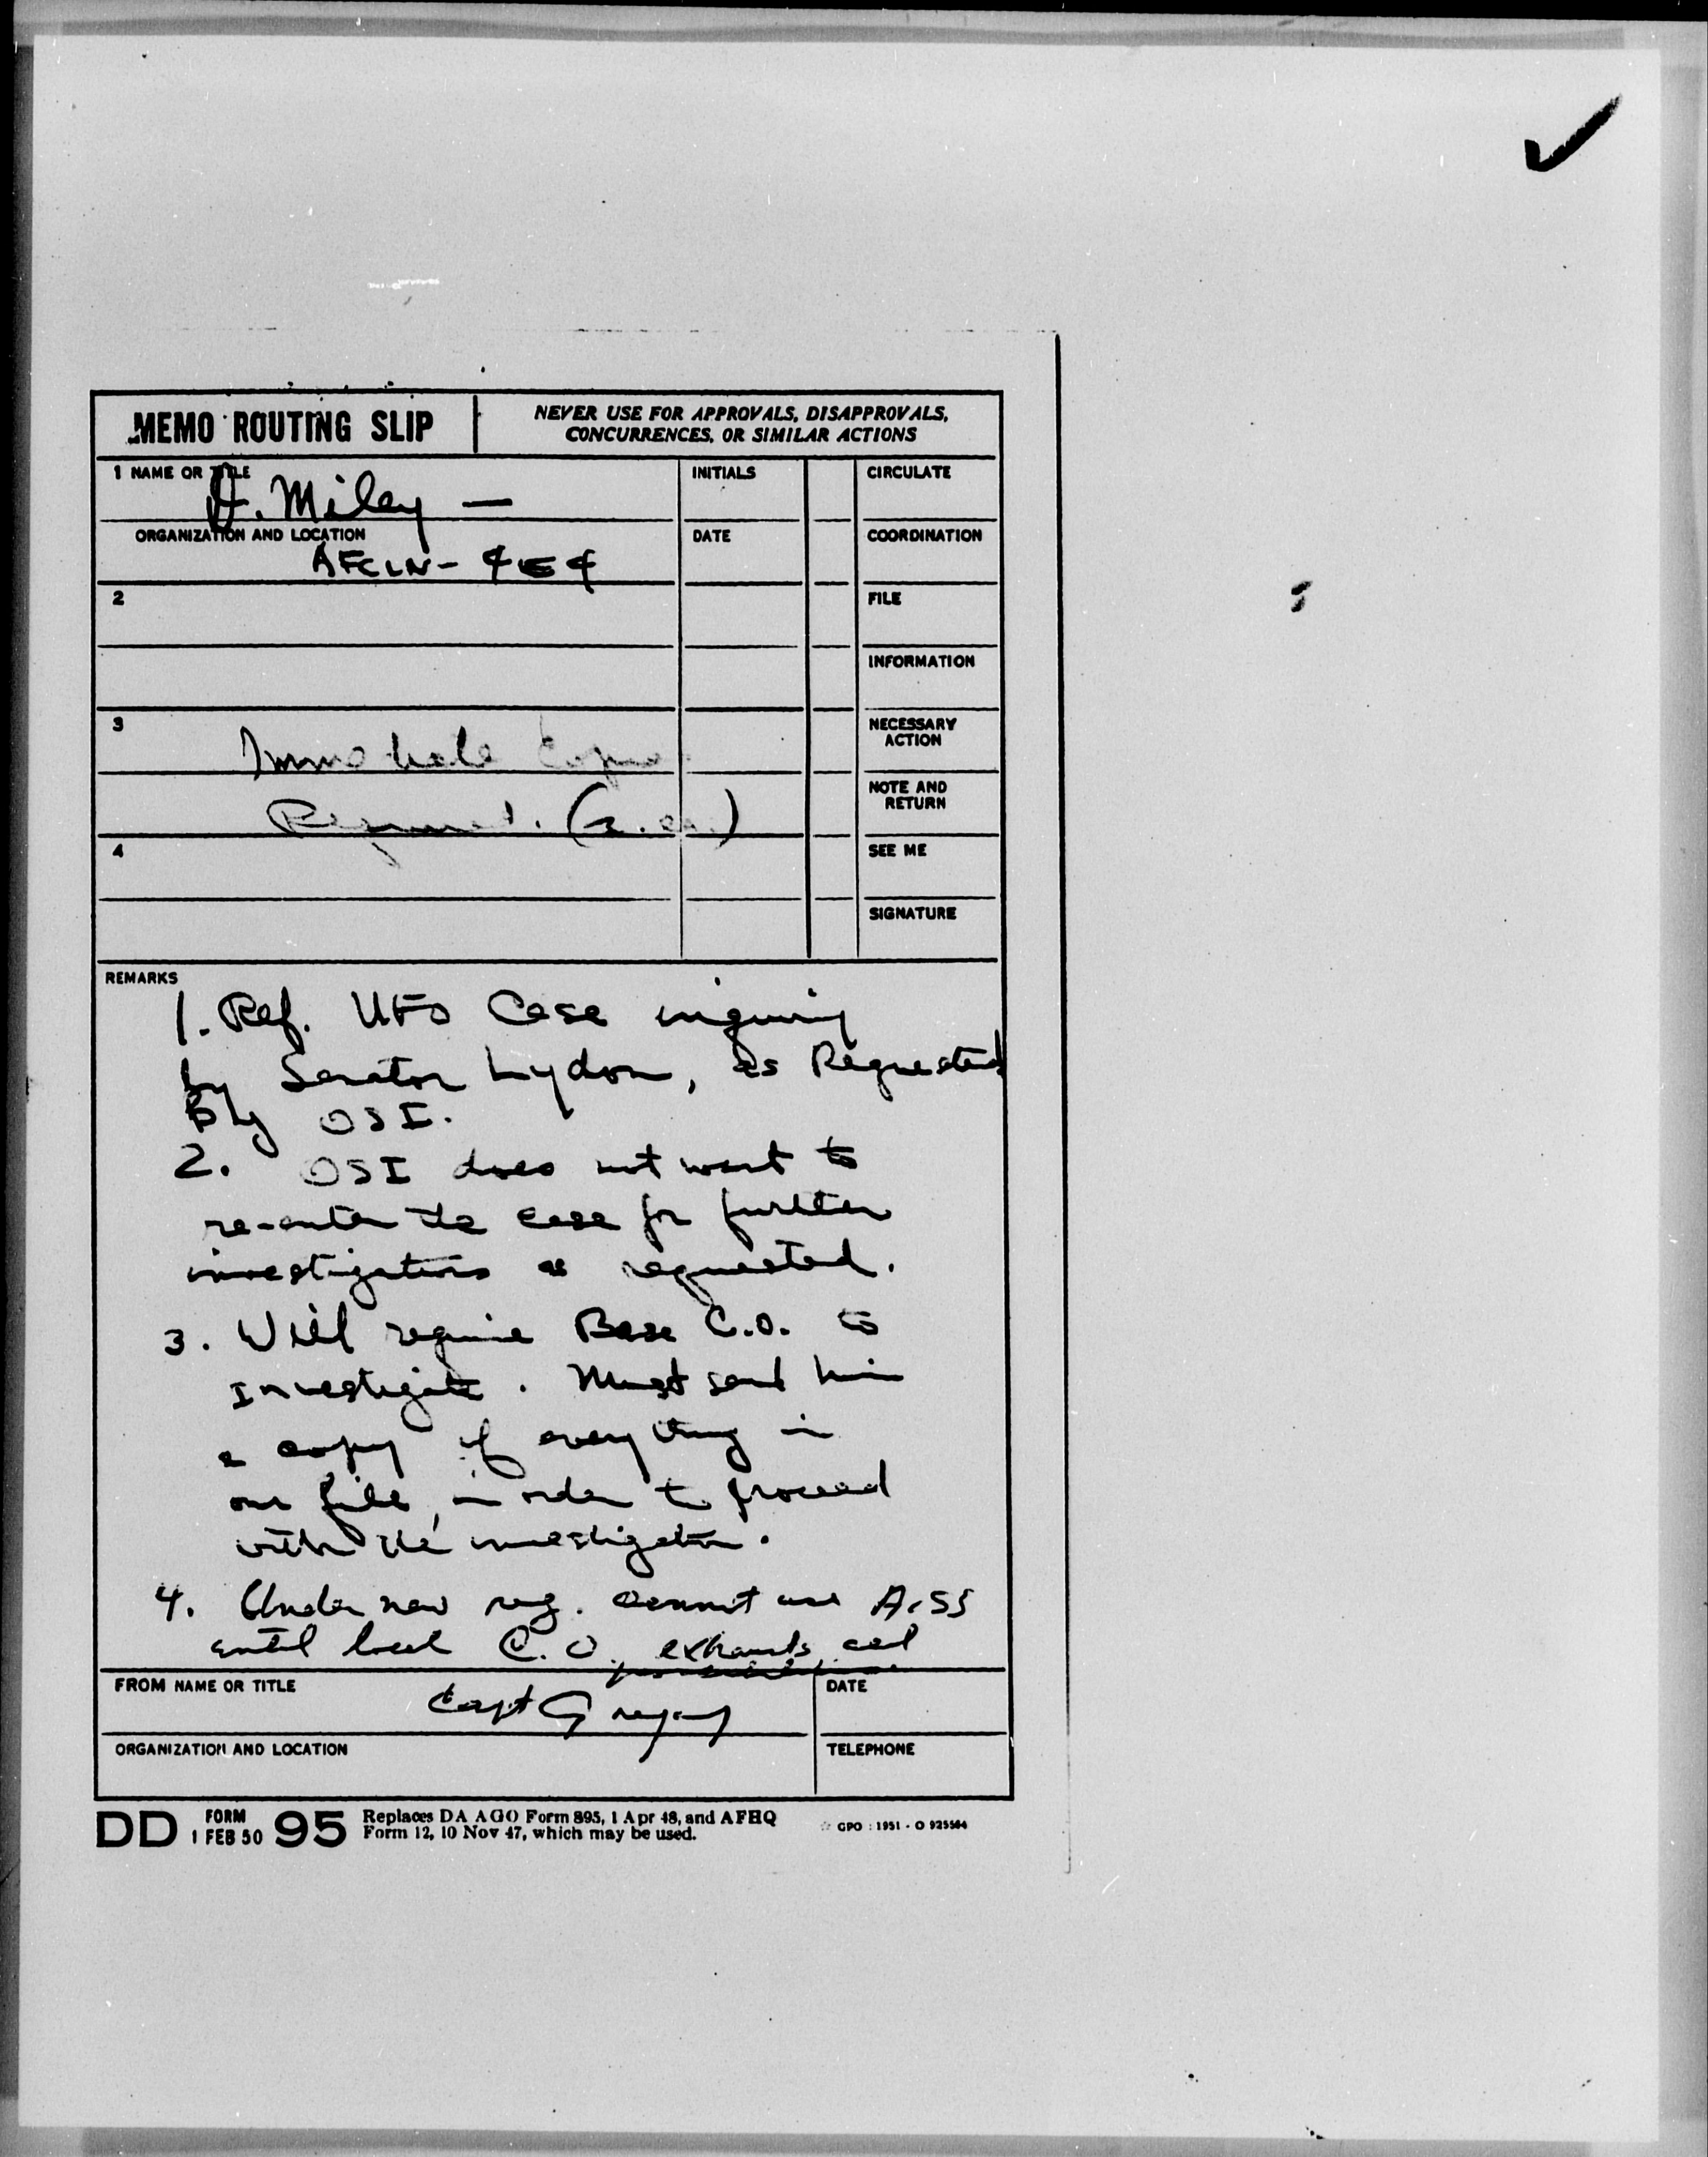 MEMO ROUTING SLIP
NEVER USE FOR APPROVALS, DISAPPROVALS,
CONCURRENCES, OR SIMILAR ACTIONS
1 NAME OR TITLE
A. Miley —
INITIALS
CIRCULATE
ORGANIZATION AND LOCATION
DATE
COORDINATION
AFCIN- 4E4
2
FILE
INFORMATION
3
NECESSARY
ACTION
NOTE AND
RETURN
4
SEE ME
SIGNATURE
REMARKS
1. Ref. UFO Case inquiry
by Senator Lydon, as Requested
By OSI.
2. OSI does not want to
re-enter the case for further
investigations as requested.
3. Will require Base C.O. to
Investigate. Must send him
a copy of everything in
our file, in order to proceed
with the investigation.
4. Under new reg. cannot use
until local C.O. exhausts
FROM NAME OR TITLE
Capt Gregory
DATE
ORGANIZATION AND LOCATION
TELEPHONE
DD FORM 1 FEB 50 95
Replaces DA AGO Form 895, 1 Apr 48, and AFHQ
Form 12, 10 Nov 47, which may be used.
GPO : 1951 - O 925564